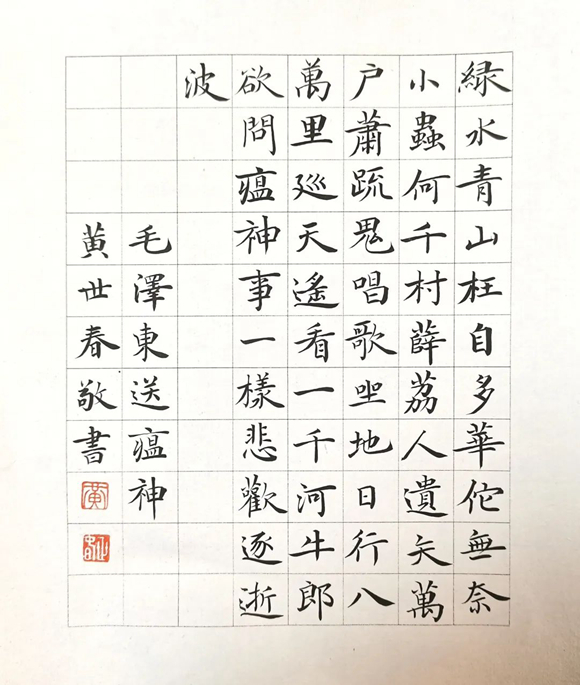 緑水青山枉自多華佗無奈
小蟲何千村薛荔人遺矢萬
户蕭疏鬼唱歌坐地日行八
萬里巡天遙看一千河牛郎
欲問瘟神事一樣悲歡逐逝
波
毛澤東送瘟神
黄世春敬書
黄